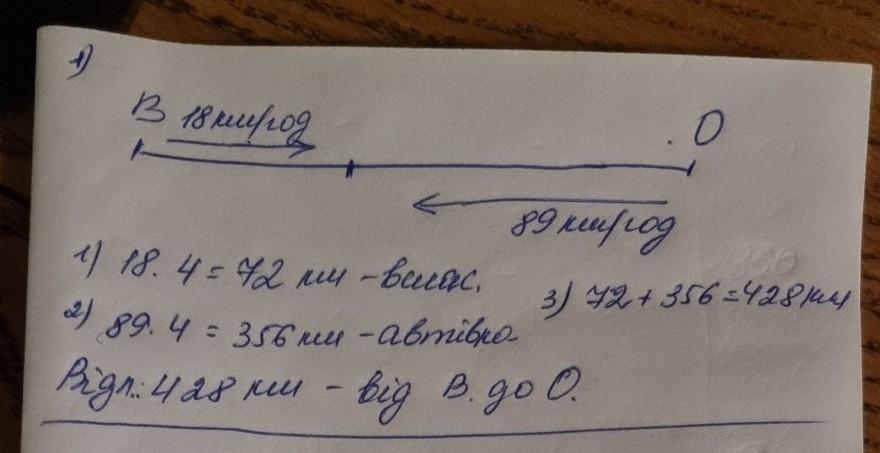 1)
В 18 км/год О
89 км/год
1) 18 · 4 = 72 км – велос.
2) 89 · 4 = 356 км – автівка
3) 72 + 356 = 428 км
Відп.: 428 км – від В. до О.